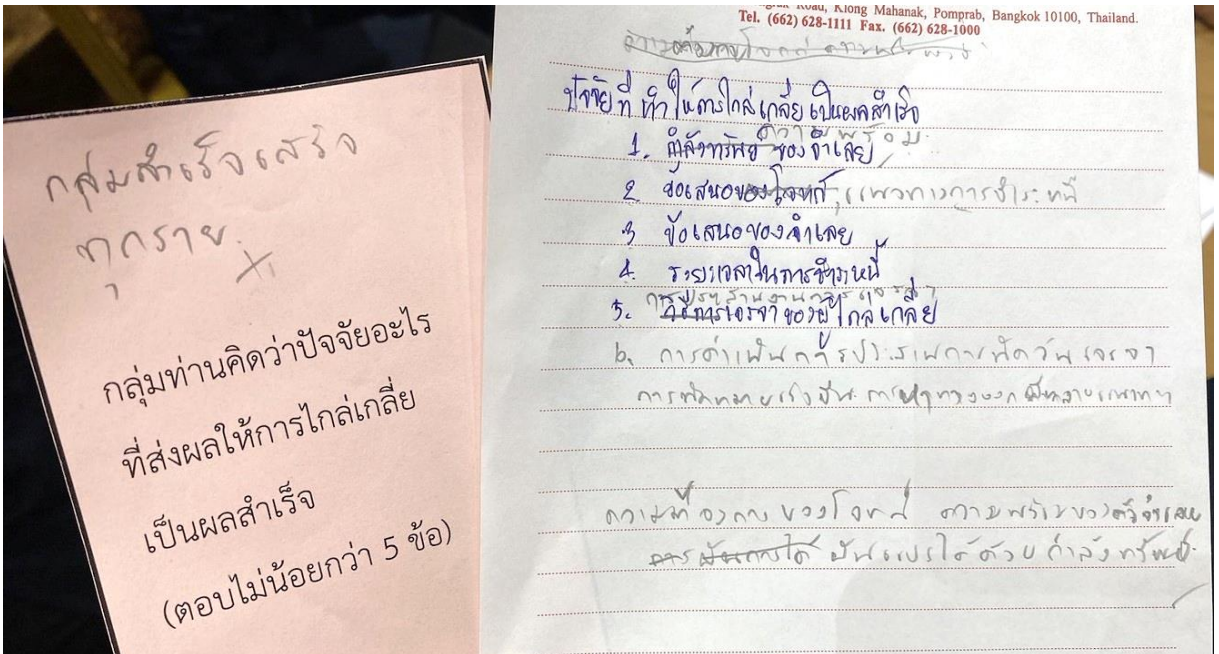 กลุ่มสำเร็จเสร็จ
ทุกราย
กลุ่มท่านคิดว่าปัจจัยอะไร
ที่ส่งผลให้การไกล่เกลี่ย
เป็นผลสำเร็จ
(ตอบไม่น้อยกว่า 5 ข้อ)
Road, Klong Mahanak, Pomprab, Bangkok 10100, Thailand.
Tel. (662) 628-1111 Fax. (662) 628-1000
ปัจจัยที่ทำให้การไกล่เกลี่ยเป็นผลสำเร็จ
ความพร้อม
1. กำลังทรัพย์ของจำเลย
2 ข้อเสนอของโจทก์, แนวทางการชำระหนี้
3 ข้อเสนอของจำเลย
4. ระยะเวลาในการชำระหนี้
การประสานงานการเจรจา
5. วิธีการเจรจาของผู้ไกล่เกลี่ย
6. การดำเนินการประสานการนัดวันเจรจา
ความต้องการของโจทก์ ความพร้อมของตัวจำเลย
ผันแปรได้ด้วยกำลังทรัพย์